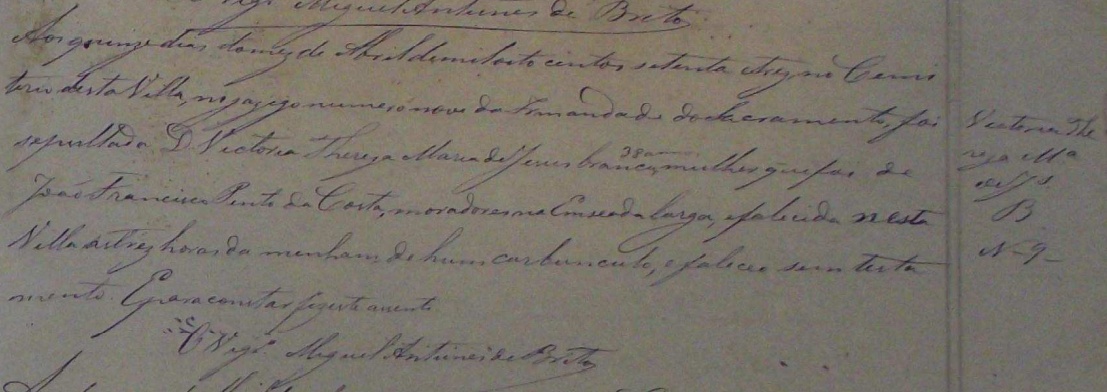 Vigr.º Miguel Antunes de Brito
Aos quinze dias do mez de Abril de mil oito centos setenta e trez, no Cemi
terio desta Villa, no jazigo numero nove da Irmandade do Sacramento, foi
sepultada D. Victoria Thereza Maria de Jesus branca, 38 an mulher que foi de
João Francisco Pinto da Costa, moradores na Enseada larga, e falecida nesta
Villa as trez horas da menham de hum carbunculo, e faleceo sem testa
mento. E para constar fiz este acento
O Vigr.º Miguel Antunes de Brito
Victoria The
reza Mª
de Js
B
N-9-